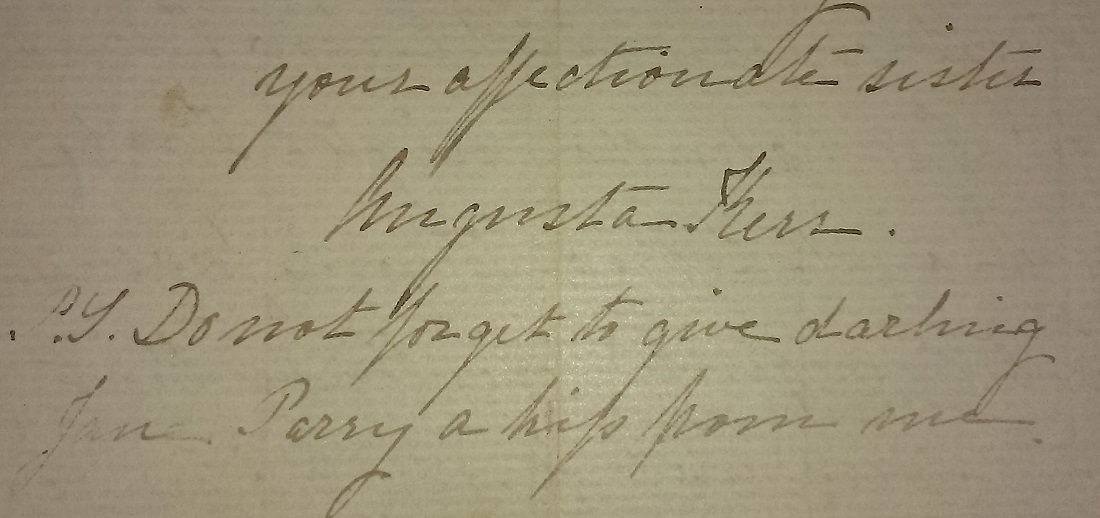 your affectionate sister
Augusta Kerr.
P.S. Do not forget to give darling
Jane Parry a kiss from me.